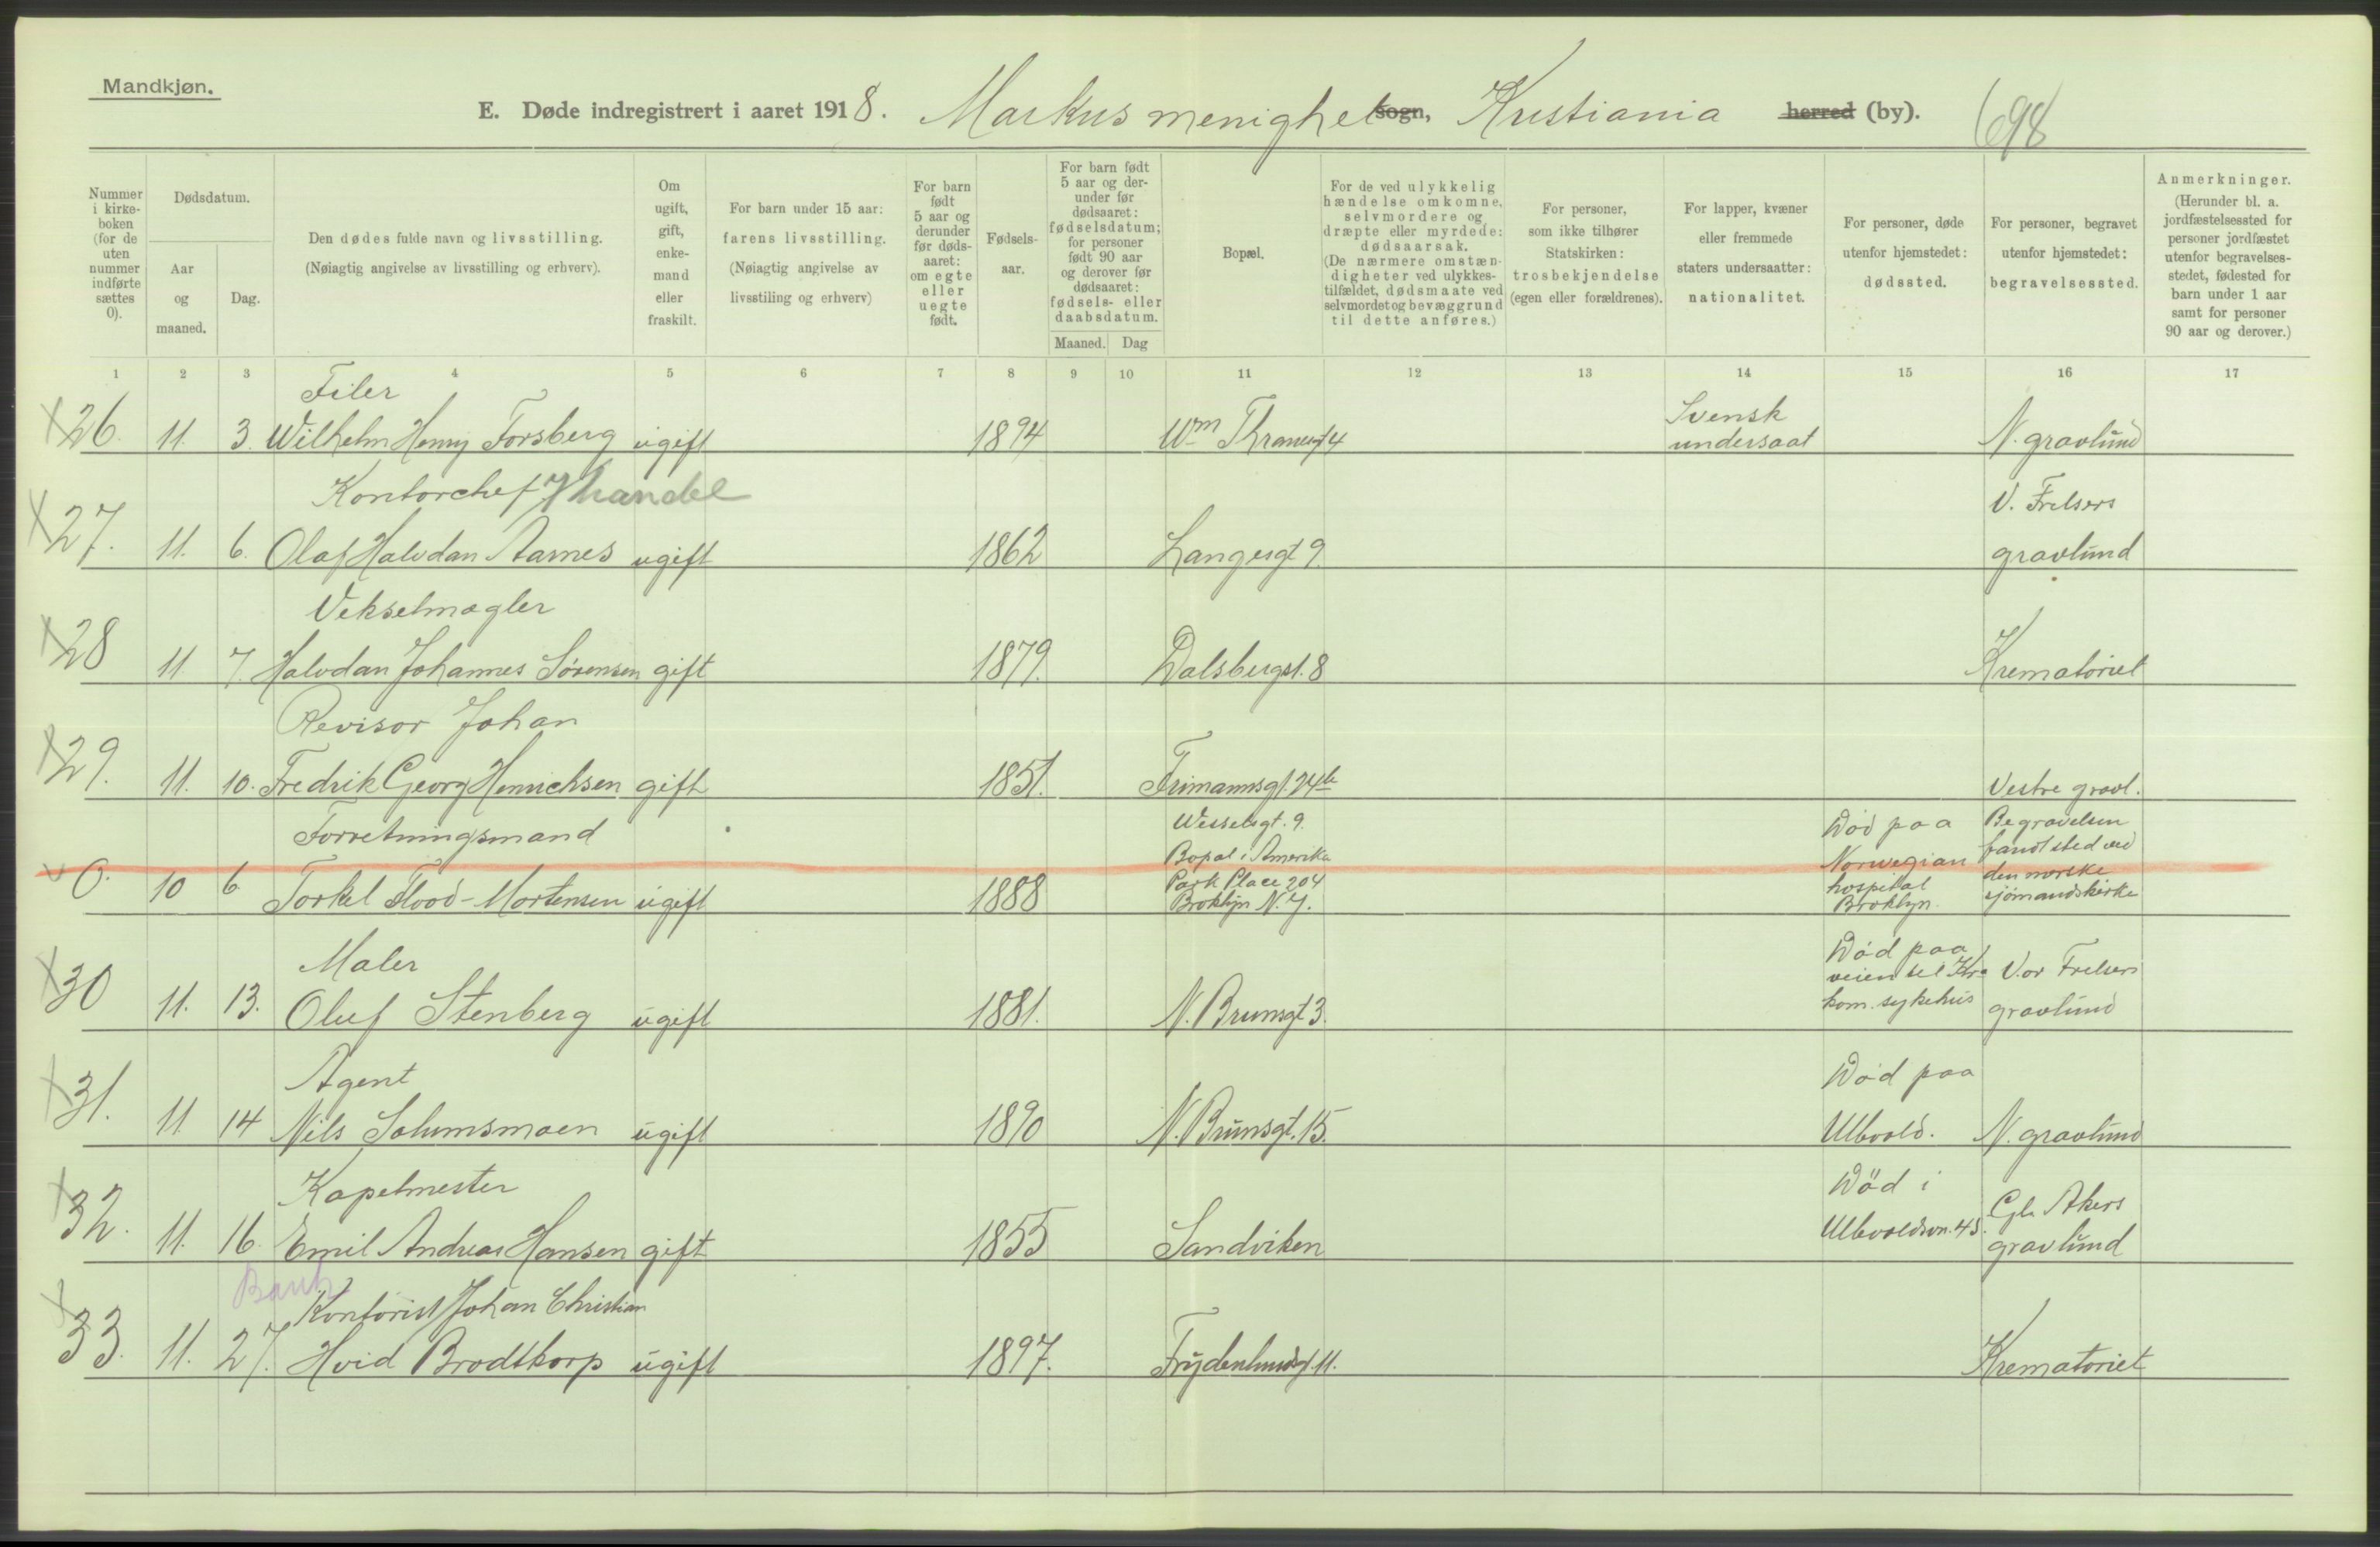 Mandkjøn.
E. Døde indregistrert i aaret 1918. Markus menighet sogn, Kristiania herred (by). 698
Nummer i kirke-boken (for de uten nummer indførte sættes 0).
Dødsdatum.
Aar og maaned.
Dag.
Den dødes fulde navn og livsstilling.
(Nøiagtig angivelse av livsstilling og erhverv).
Om ugift, gift, enke-mand eller fraskilt.
For barn under 15 aar: farens livsstilling.
(Nøiagtig angivelse av livsstiling og erhverv)
For barn født 5 aar og derunder før døds-aaret: om egte eller uegte født.
Fødsels-aar.
For barn født 5 aar og der-under før dødsaaret: fødselsdatum; for personer født 90 aar og derover før dødsaaret: fødsels- eller daabsdatum.
Maaned. Dag
Bopæl.
For de ved ulykkelig hændelse omkomne, selvmordere og dræpte eller myrdede: dødsaarsak.
(De nærmere omstæn-digheter ved ulykkes-tilfældet, dødsmaate ved selvmordet og bevæggrund til dette anføres.)
For personer, som ikke tilhører Statskirken: trosbekjendelse (egen eller forældrenes).
For lapper, kvæner eller fremmede staters undersaatter: nationalitet.
For personer, døde utenfor hjemstedet: dødssted.
For personer, begravet utenfor hjemstedet: begravelsessted.
Anmerkninger.
(Herunder bl. a. jordfæstelsessted for personer jordfæstet utenfor begravelses-stedet, fødested for barn under 1 aar samt for personer 90 aar og derover.)
1 2 3 4 5 6 7 8 9 10 11 12 13 14 15 16 17
Filer Svensk
26. 11. 3. Wilhelm Henry Forsberg ugift 1894 Wm Thranesgt 4 undersaat N. gravlund
Kontorchef handel V. Frelsers
27. 11. 6. Olaf Halvdan Aarnes ugift 1862 Langesgt 9. gravlund
Vekselmægler
28 11 7. Halvdan Johannes Sörensen gift 1879. Dalsbergst. 8 Krematoriet
Revisor Johan
29. 11. 10. Fredrik Georg Henrichsen gift 1851. Frimannsgt. 24b Vestre gravl.
Forretningsmand Wesselsgt. 9. Död paa Begravelsen
Bopæl i Amerika Norwegian fandt sted ved
Park Place 204 hospital den norske
0. 10 6 Torkel Flood-Mortensen ugift 1888 Broklyn N.Y. Broklyn. sjömandskirke
Maler Död paa
veien til Kra Vor Frelsers
30 11. 13. Oluf Stenberg ugift 1881. N. Brunsgt 3. kom. sykehus gravlund
Agent Död paa
31. 11 14 Nils Solumsmoen ugift 1890 N. Brunsgt. 15. Ullevold. N. gravlund
Kapelmester Död i Gl. Akers
32. 11. 16. Emil Andreas Hansen gift 1855 Sandviken Ullevoldsvn. 45. gravlund
Bank
Kontorist Johan Christian
33. 11. 27. Hvid Brodtkorp ugift 1897. Frydenlundsgt. 11. Krematoriet